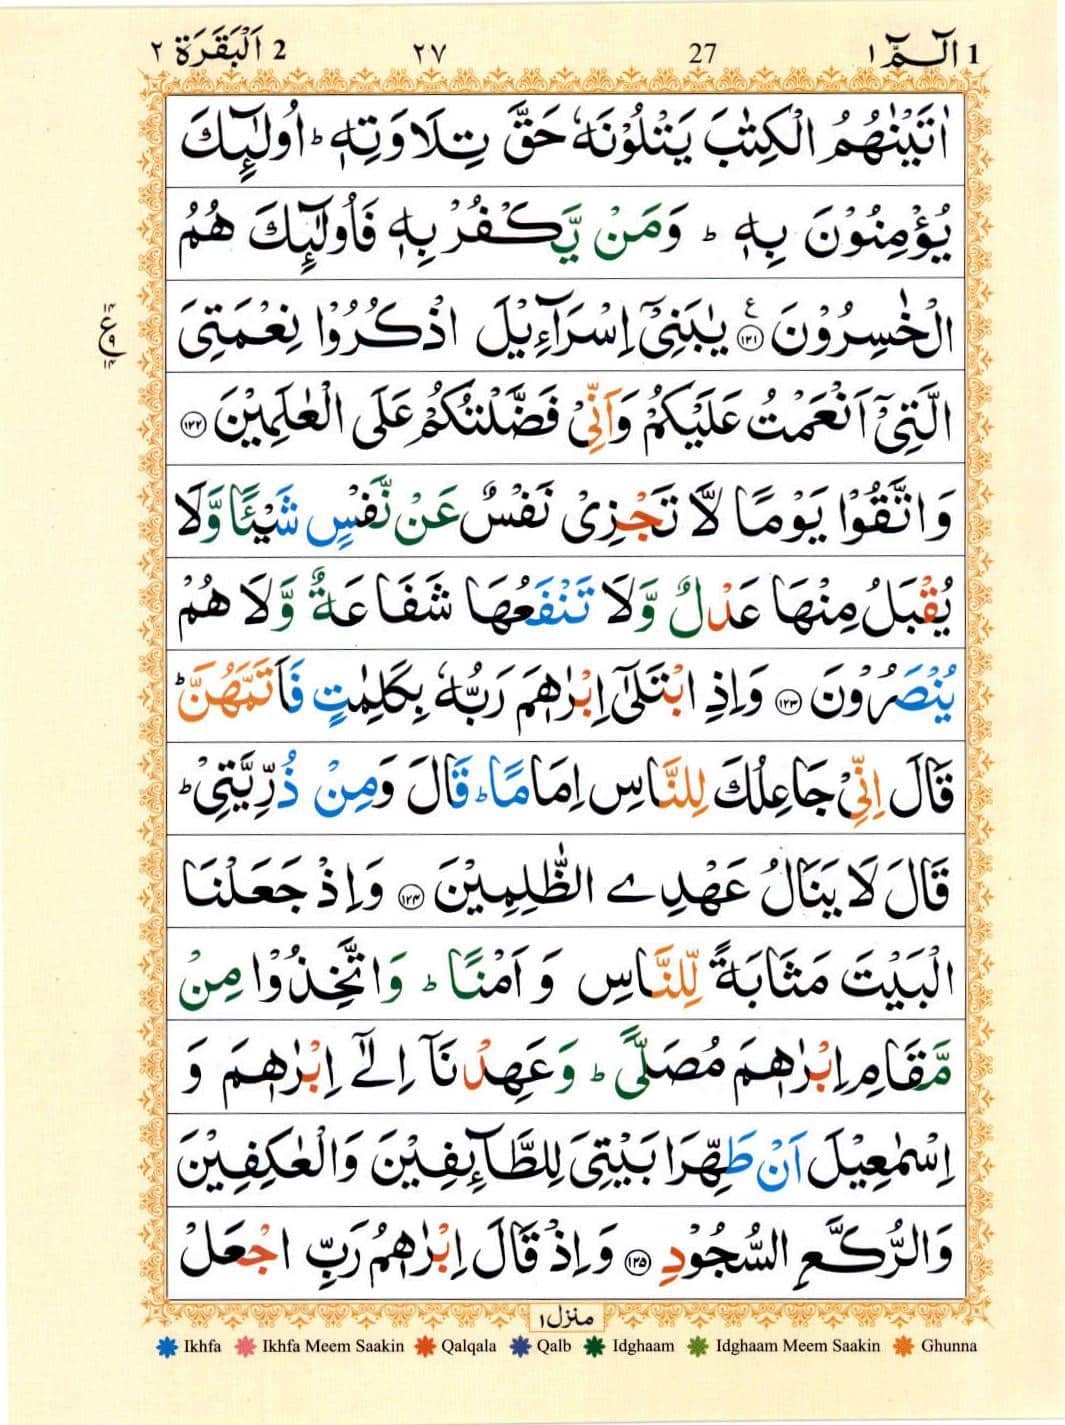 2 اَلْبَقَرَة ٢ ٢٧ 27 الٓمّٓ ١ 1
اٰتَيْنٰهُمُ الْكِتٰبَ يَتْلُوْنَهٗ حَقَّ تِلَاوَتِهٖ ؕ اُولٰٓئِكَ
يُؤْمِنُوْنَ بِهٖ ؕ وَمَنْ يَّكْفُرْ بِهٖ فَاُولٰٓئِكَ هُمُ
الْخٰسِرُوْنَ ﴿۱۲۱﴾ ع يٰبَنِيْۤ اِسْرَآءِيْلَ اذْكُرُوْا نِعْمَتِيَ
١٤ ع ٩ ١٤
الَّتِيْۤ اَنْعَمْتُ عَلَيْكُمْ وَاَنِّيْ فَضَّلْتُكُمْ عَلَى الْعٰلَمِيْنَ ﴿۱۲۲﴾
وَاتَّقُوْا يَوْمًا لَّا تَجْزِيْ نَفْسٌ عَنْ نَّفْسٍ شَيْئًا وَّلَا
يُقْبَلُ مِنْهَا عَدْلٌ وَّلَا تَنْفَعُهَا شَفَاعَةٌ وَّلَا هُمْ
يُنْصَرُوْنَ ﴿۱۲۳﴾ وَاِذِ ابْتَلٰۤى اِبْرٰهٖمَ رَبُّهٗ بِكَلِمٰتٍ فَاَتَمَّهُنَّ ؕ
قَالَ اِنِّيْ جَاعِلُكَ لِلنَّاسِ اِمَامًا ؕ قَالَ وَمِنْ ذُرِّيَّتِيْ ؕ
قَالَ لَا يَنَالُ عَهْدِي الظّٰلِمِيْنَ ﴿۱۲۴﴾ وَاِذْ جَعَلْنَا
الْبَيْتَ مَثَابَةً لِّلنَّاسِ وَاَمْنًا ؕ وَاتَّخِذُوْا مِنْ
مَّقَامِ اِبْرٰهٖمَ مُصَلًّى ؕ وَعَهِدْنَاۤ اِلٰۤى اِبْرٰهٖمَ وَ
اِسْمٰعِيْلَ اَنْ طَهِّرَا بَيْتِيَ لِلطَّآئِفِيْنَ وَالْعٰكِفِيْنَ
وَالرُّكَّعِ السُّجُوْدِ ﴿۱۲۵﴾ وَاِذْ قَالَ اِبْرٰهٖمُ رَبِّ اجْعَلْ
منزل ١
Ikhfa Ikhfa Meem Saakin Qalqala Qalb Idghaam Idghaam Meem Saakin Ghunna